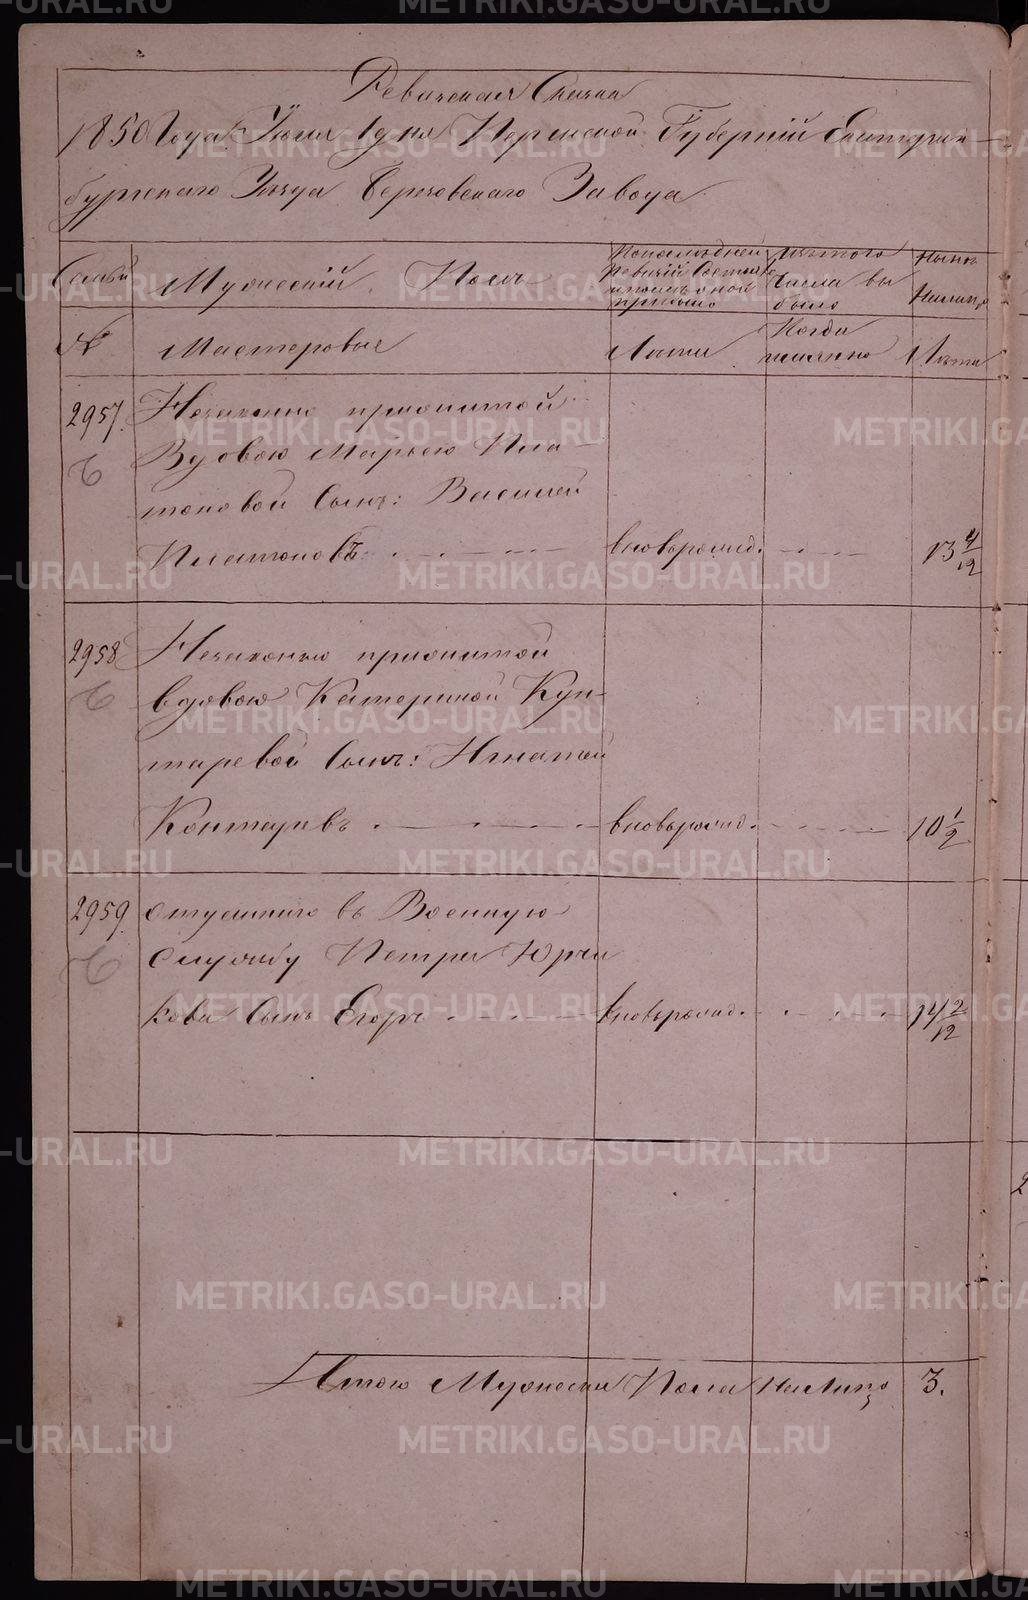 Ревизская Сказка
1850 Года Июля 1 дня Пермской Губерній Екатерин-
бургскаго Уезда Березовскаго Завода
Семьи
Мужескій Полъ
По последней
Ревизій Состояло
и после оной
прибыло
Изъ того
Числа вы
было
Ныне
На лицо
№
Мастеровые
Лета
Когда
именно
Лета
2957.
Незаконно прижитой
Вдовою Марьею Пла-
тоновой Сынъ: Василей
Платоновъ
вновьрожд.
13 4/12
2958
Незаконно прижитой
вдовою Катериной Кун-
таревой Сынъ: Игнатей
Контаревъ
вновьрожд.
10 1/2
2959.
отданнаго въ Военную
Службу Петра Юрча
кова Сынъ Егоръ
вновьрожд.
14 2/12
Итого Мужеска Пола На Лицо
3.
METRIKI.GASO-URAL.RU